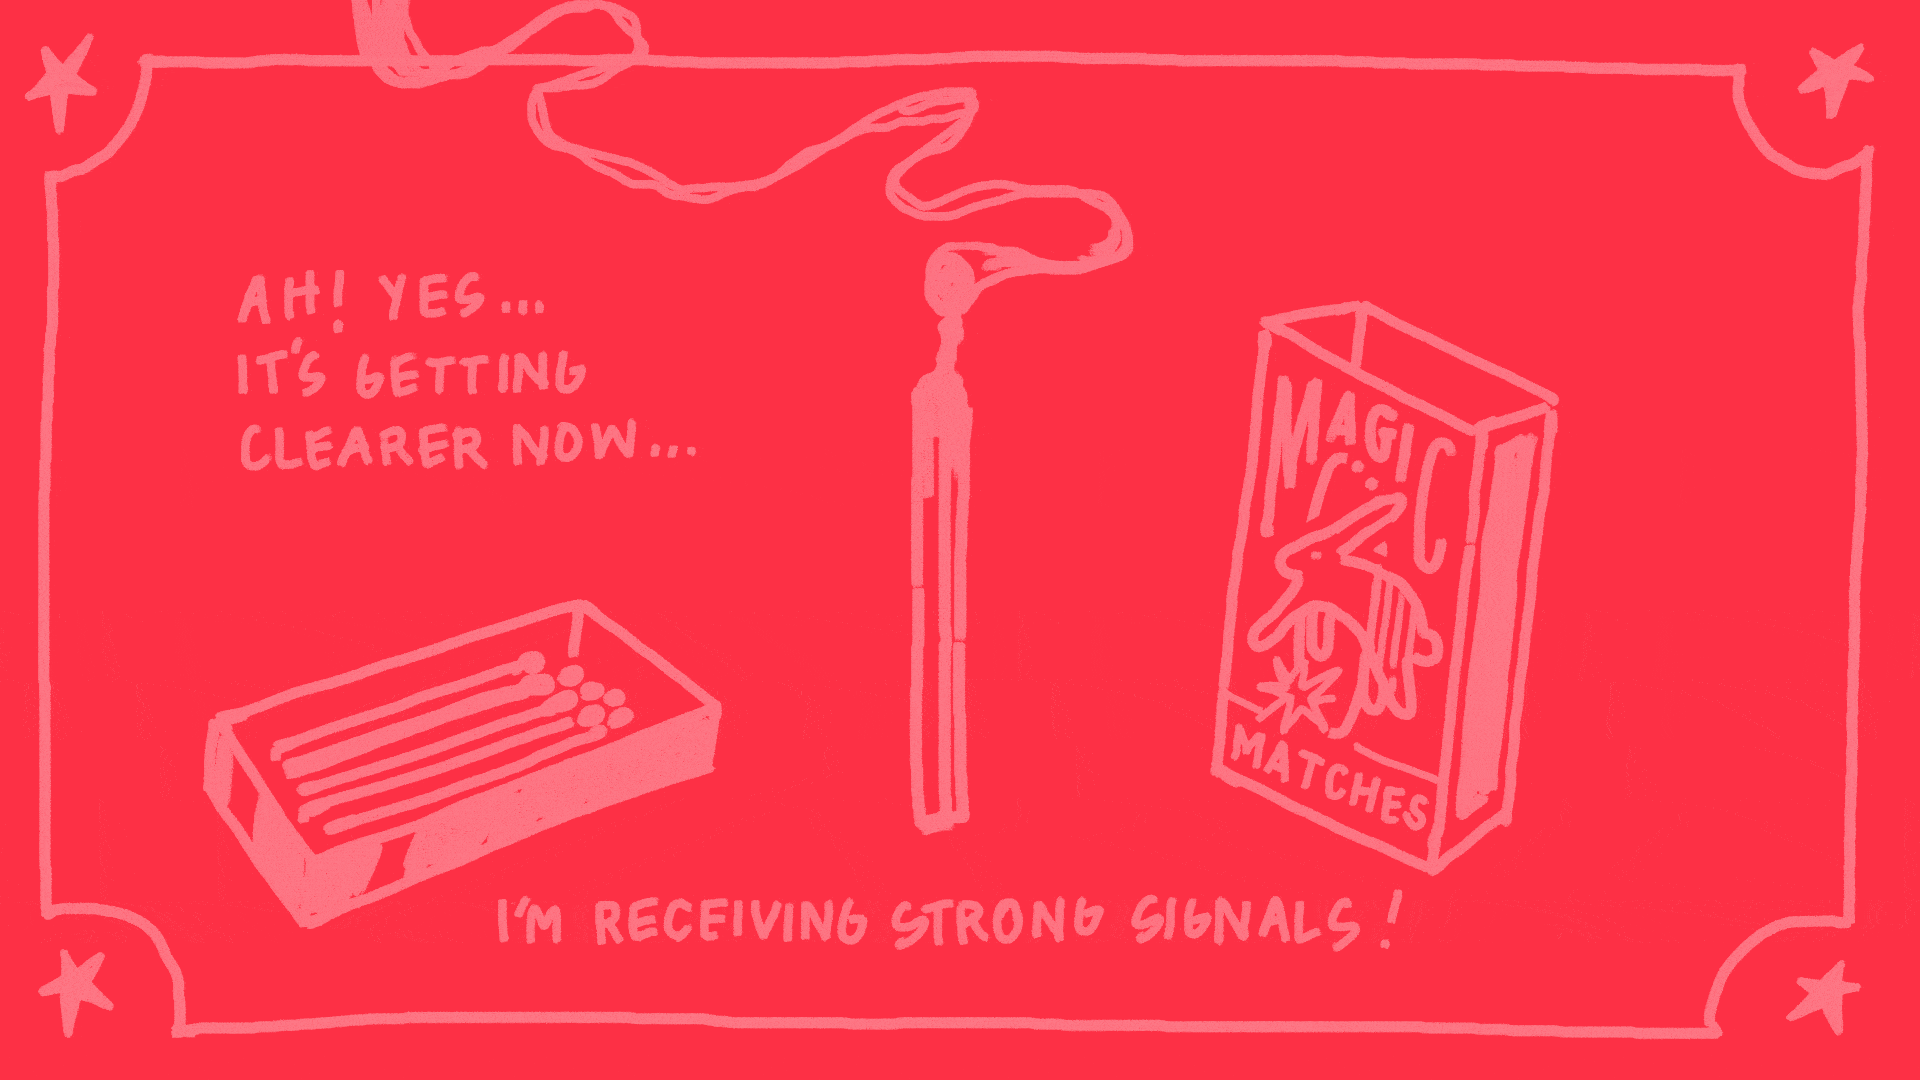 AH! YES...
IT'S GETTING
CLEARER NOW...
MAGIC
MATCHES
I'M RECEIVING STRONG SIGNALS!